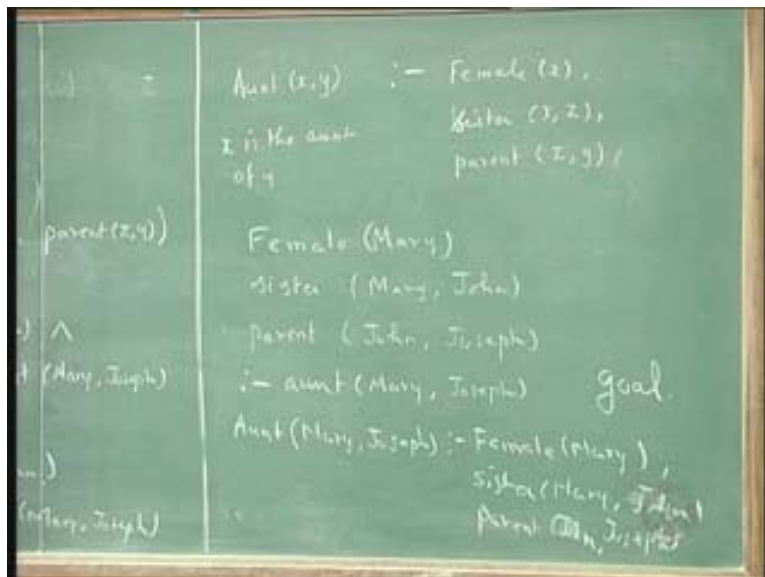 parent(z,y))
∧
(Mary, Joseph)
(Mary, Joseph)
Aunt (x,y) :- Female (x),
sister (x,z),
x is the aunt
parent (z,y),
of y
Female (Mary)
sister (Mary, John)
parent (John, Joseph)
:- aunt (Mary, Joseph) goal.
Aunt (Mary, Joseph) :- Female (Mary),
sister (Mary, John)
parent Joseph